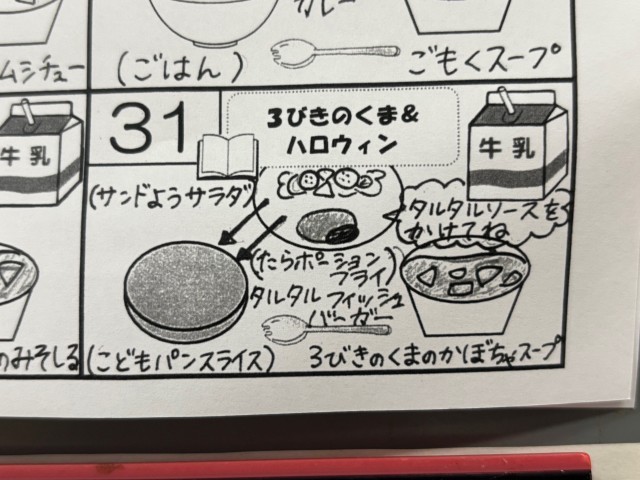 カレー
ムシチュー
(ごはん)
ごもくスープ
牛乳
31
3びきのくま&
ハロウィン
牛乳
(サンドようサラダ)
タルタルソースを
かけてね
(たらポーション
フライ)
タルタルフィッシュ
バーガー
のみそしる
(こどもパンスライス)
3びきのくまのかぼちゃスープ